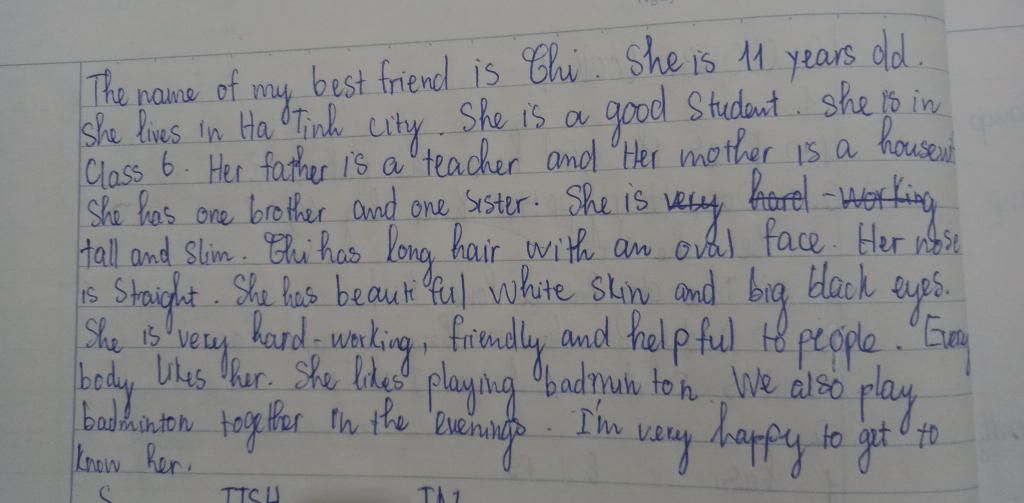 The name of my best friend is Thi. She is 11 years old.
She lives in Ha Tinh city. She is a good Student. she is in
Class 6. Her father is a teacher and Her mother is a housewi
She has one brother and one sister. She is very hard - working
tall and slim. Thi has long hair with an oval face. Her nose
is Straight. She has beautiful white skin and big black eyes.
She is very hard-working, friendly and helpful to people. Every
body likes her. She likes playing badminton. We also play
badminton together in the evenings. I'm very happy to get to
know her.